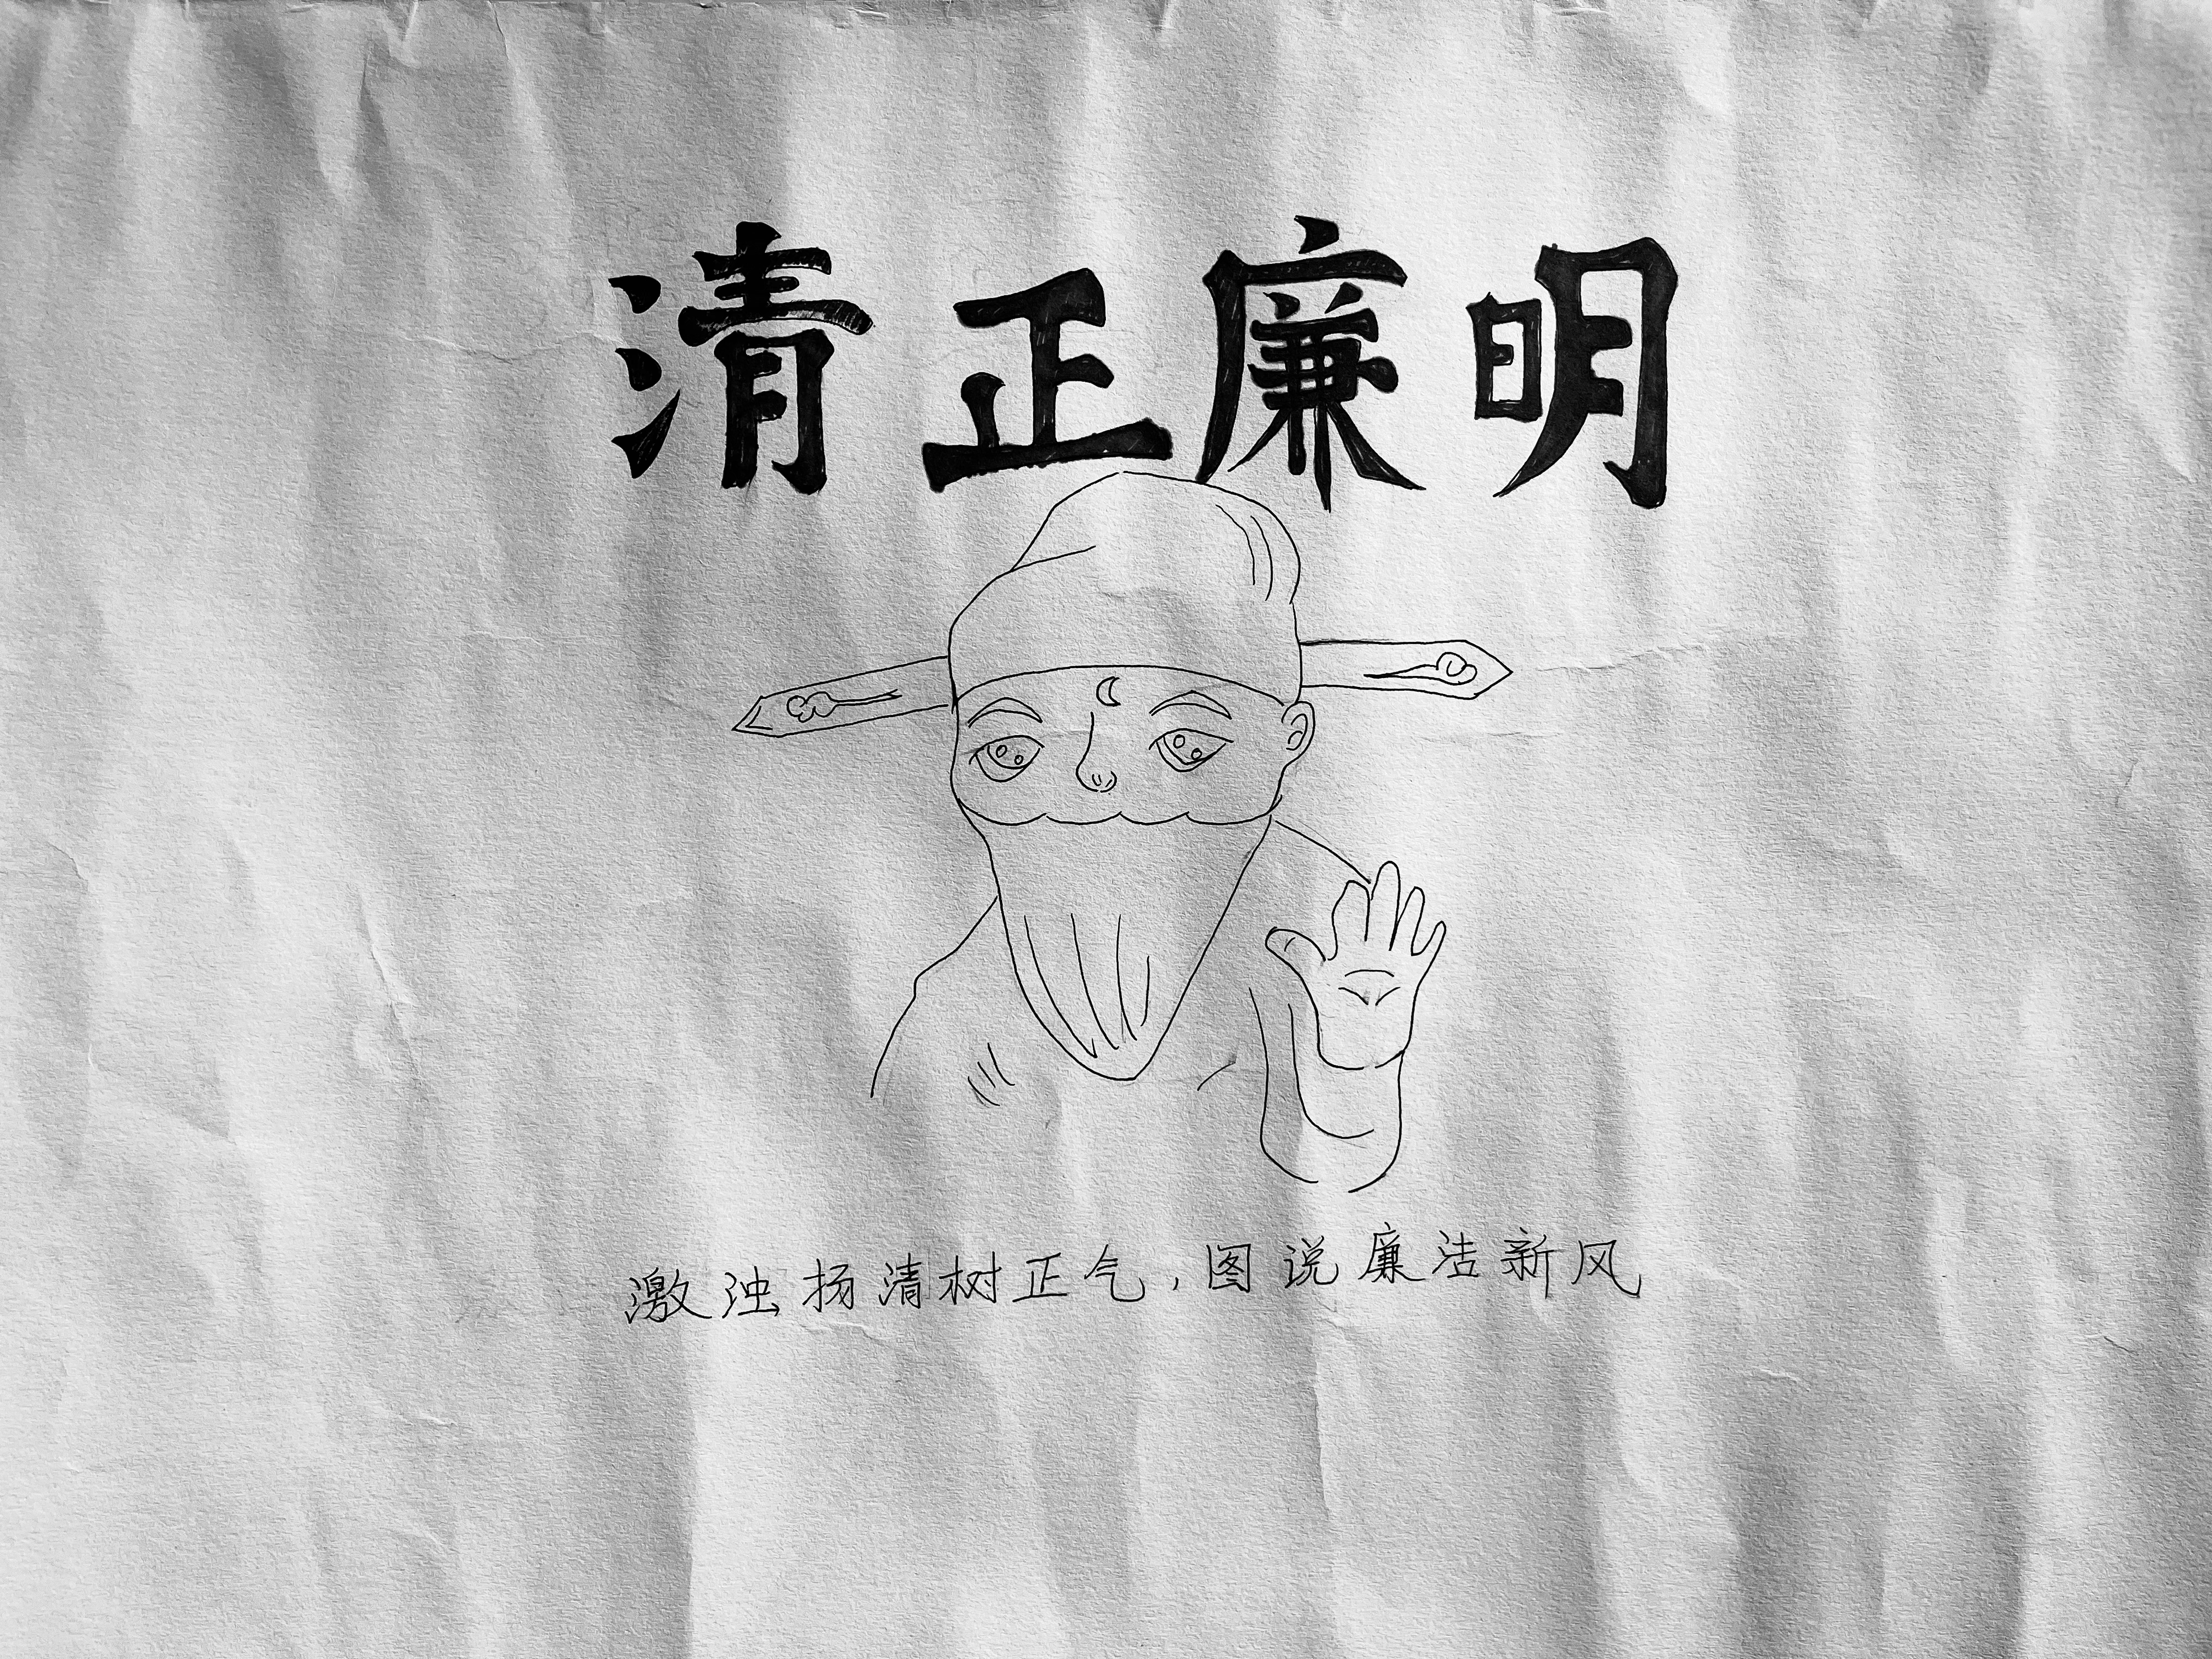 清正廉明
激浊扬清树正气，图说廉洁新风